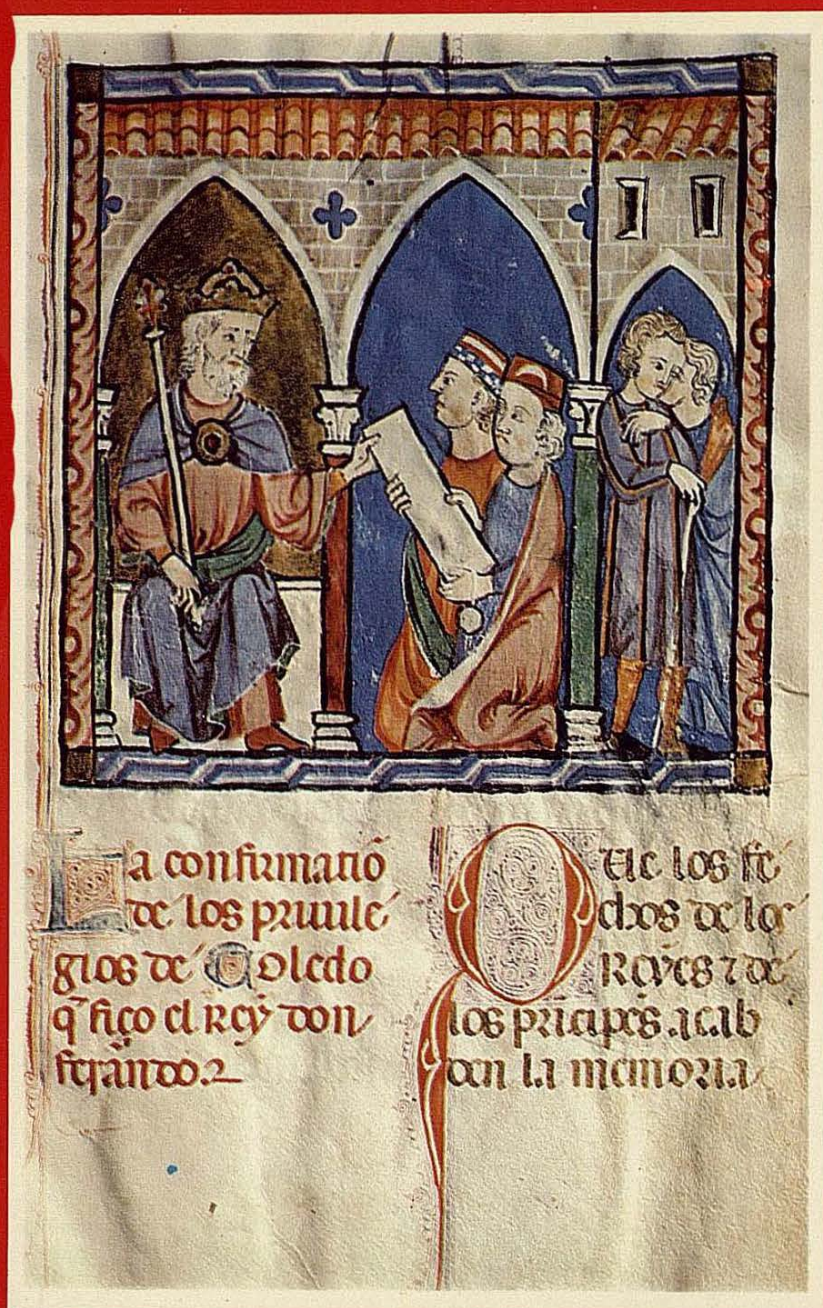 La confirmatiõ
de los priuile
gios de Toledo
q̃ fiço el rey don
ferãndo.
Que los fe
chos de los
Reyes ⁊ de
los prícipes. acab
den la memoria